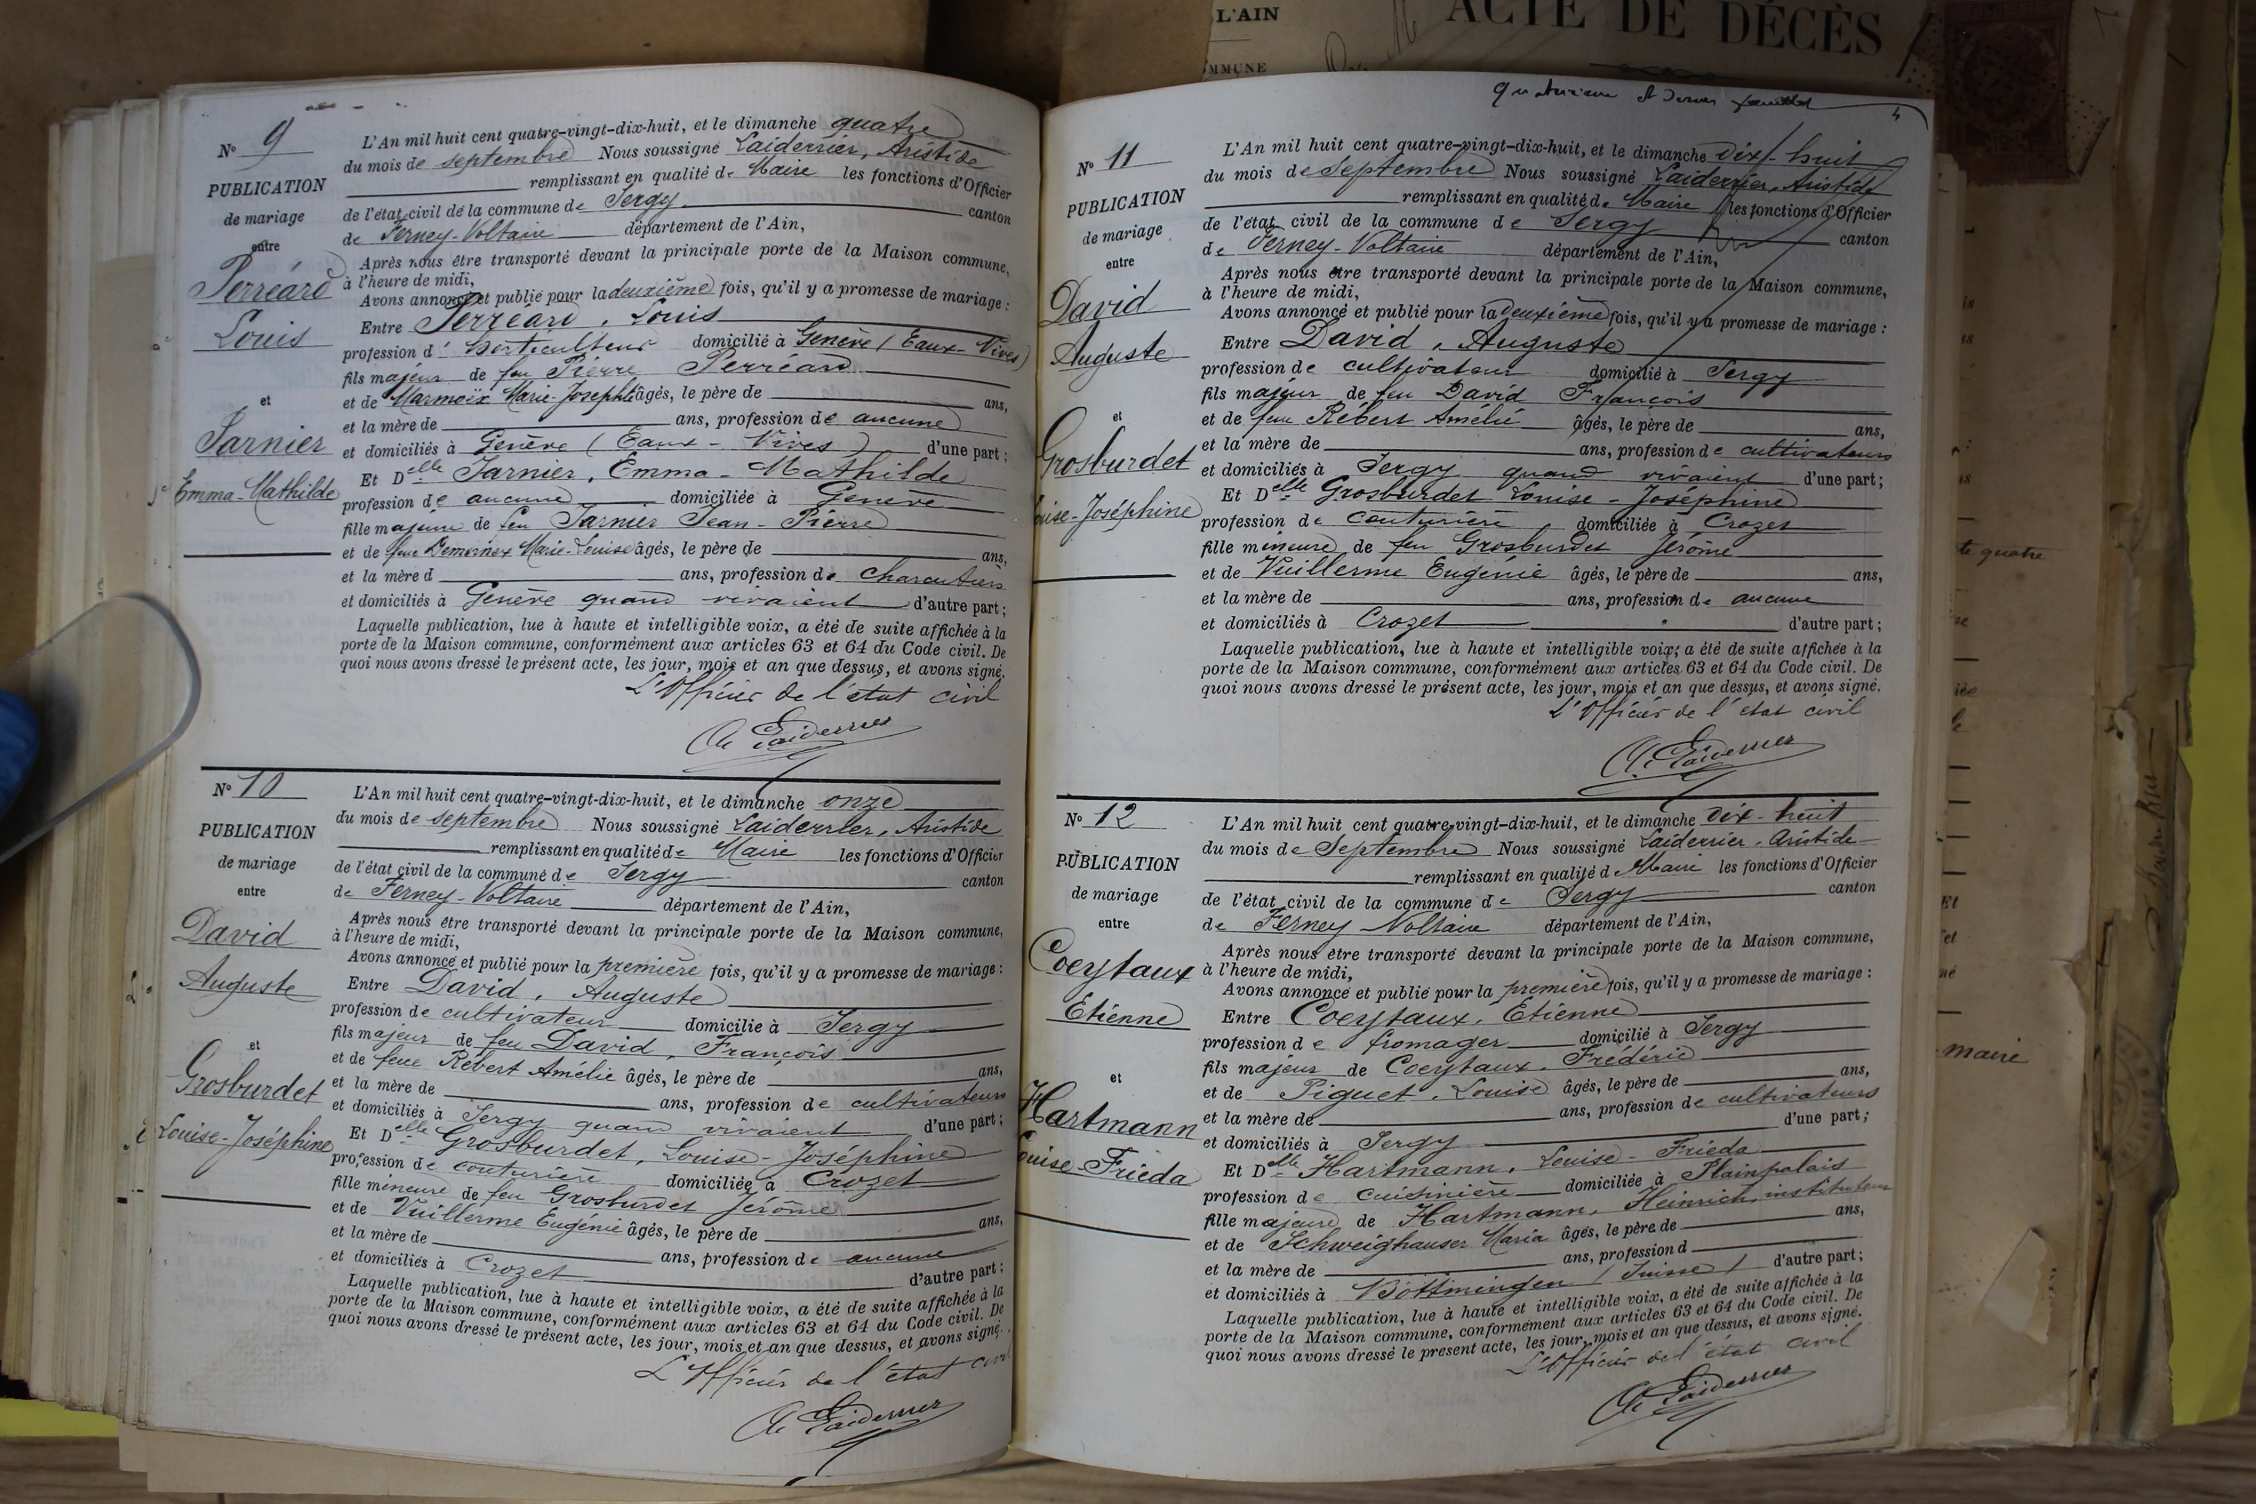 L'AIN
ACTE DE DÉCÈS
MMUNE
N° 9
PUBLICATION
de mariage
entre
Perréard
Louis
et
Jarnier
Emma-Mathilde
L'An mil huit cent quatre-vingt-dix-huit, et le dimanche quatre
du mois de septembre Nous soussigné Laiderrier, Aristide
remplissant en qualité de Maire les fonctions d'Officier
de l'état civil de la commune de Sergy canton
de Ferney-Voltaire département de l'Ain,
Après nous être transporté devant la principale porte de la Maison commune,
à l'heure de midi,
Avons annoncé et publié pour la deuxième fois, qu'il y a promesse de mariage :
Entre Perréard, Louis
profession d' horticulteur domicilié à Genève (Eaux-Vives)
fils majeur de feu Pierre Perréard
et de Marmoix Marie-Josephte âgés, le père de ans,
et la mère de ans, profession de aucune
et domiciliés à Genève (Eaux-Vives) d'une part ;
Et Delle Jarnier, Emma-Mathilde
profession de aucune domiciliée à Genève
fille majeure de feu Jarnier Jean-Pierre
et de feue Demornex Marie-Louise âgés, le père de ans,
et la mère d ans, profession de charcutiers
et domiciliés à Genève quand vivaient d'autre part ;
Laquelle publication, lue à haute et intelligible voix, a été de suite affichée à la
porte de la Maison commune, conformément aux articles 63 et 64 du Code civil. De
quoi nous avons dressé le présent acte, les jour, mois et an que dessus, et avons signé.
L'Officier de l'état civil
Ae Laiderrier
N° 10
PUBLICATION
de mariage
entre
David
Auguste
et
Grosburdet
Louise-Joséphine
L'An mil huit cent quatre-vingt-dix-huit, et le dimanche onze
du mois de septembre Nous soussigné Laiderrier, Aristide
remplissant en qualité de Maire les fonctions d'Officier
de l'état civil de la commune de Sergy canton
de Ferney-Voltaire département de l'Ain,
Après nous être transporté devant la principale porte de la Maison commune,
à l'heure de midi,
Avons annoncé et publié pour la première fois, qu'il y a promesse de mariage :
Entre David, Auguste
profession de cultivateur domicilié à Sergy
fils majeur de feu David, François
et de feue Rébert Amélie âgés, le père de ans,
et la mère de ans, profession de cultivateurs
et domiciliés à Sergy quand vivaient d'une part ;
Et Delle Grosburdet, Louise-Joséphine
profession de couturière domiciliée à Crozet
fille mineure de feu Grosburdet Jérôme
et de Vuillerme Eugénie âgés, le père de ans,
et la mère de ans, profession de aucune
et domiciliés à Crozet d'autre part ;
Laquelle publication, lue à haute et intelligible voix, a été de suite affichée à la
porte de la Maison commune, conformément aux articles 63 et 64 du Code civil. De
quoi nous avons dressé le présent acte, les jour, mois et an que dessus, et avons signé.
L'Officier de l'état civil
Ae Laiderrier
quatrième et dernier feuillet
4
N° 11
PUBLICATION
de mariage
entre
David
Auguste
et
Grosburdet
ouise-Joséphine
L'An mil huit cent quatre-vingt-dix-huit, et le dimanche dix-huit
du mois de Septembre Nous soussigné Laiderrier, Aristide
remplissant en qualité de Maire les fonctions d'Officier
de l'état civil de la commune de Sergy canton
de Ferney-Voltaire département de l'Ain,
Après nous être transporté devant la principale porte de la Maison commune,
à l'heure de midi,
Avons annoncé et publié pour la deuxième fois, qu'il y a promesse de mariage :
Entre David, Auguste
profession de cultivateur domicilié à Sergy
fils majeur de feu David François
et de feue Rébert Amélie âgés, le père de ans,
et la mère de ans, profession de cultivateurs
et domiciliés à Sergy quand vivaient d'une part ;
Et Delle Grosburdet Louise-Joséphine
profession de couturière domiciliée à Crozet
fille mineure de feu Grosburdet Jérôme
et de Vuillerme Eugénie âgés, le père de ans,
et la mère de ans, profession de aucune
et domiciliés à Crozet d'autre part ;
Laquelle publication, lue à haute et intelligible voix, a été de suite affichée à la
porte de la Maison commune, conformément aux articles 63 et 64 du Code civil. De
quoi nous avons dressé le présent acte, les jour, mois et an que dessus, et avons signé.
L'Officier de l'état civil
Ae Laiderrier
N° 12
PUBLICATION
de mariage
entre
Coeytaux
Etienne
et
Hartmann
ouise-Frieda
L'An mil huit cent quatre-vingt-dix-huit, et le dimanche dix-huit
du mois de Septembre Nous soussigné Laiderrier, Aristide
remplissant en qualité d Maire les fonctions d'Officier
de l'état civil de la commune de Sergy canton
de Ferney Voltaire département de l'Ain,
Après nous être transporté devant la principale porte de la Maison commune,
à l'heure de midi,
Avons annoncé et publié pour la première fois, qu'il y a promesse de mariage :
Entre Coeytaux, Etienne
profession de fromager domicilié à Sergy
fils majeur de Coeytaux, Frédéric
et de Piguet, Louise âgés, le père de ans,
et la mère de ans, profession de cultivateurs
et domiciliés à Sergy d'une part ;
Et Delle Hartmann, Louise-Frieda
profession de cuisinière domiciliée à Plainpalais
fille majeure de Hartmann, Heinrich, instituteur
et de Schweighauser Maria âgés, le père de ans,
et la mère de ans, profession d
et domiciliés à Bottmingen (Suisse) d'autre part ;
Laquelle publication, lue à haute et intelligible voix, a été de suite affichée à la
porte de la Maison commune, conformément aux articles 63 et 64 du Code civil. De
quoi nous avons dressé le présent acte, les jour, mois et an que dessus, et avons signé.
L'Officier de l'état civil
Ae Laiderrier
te quatre
maire